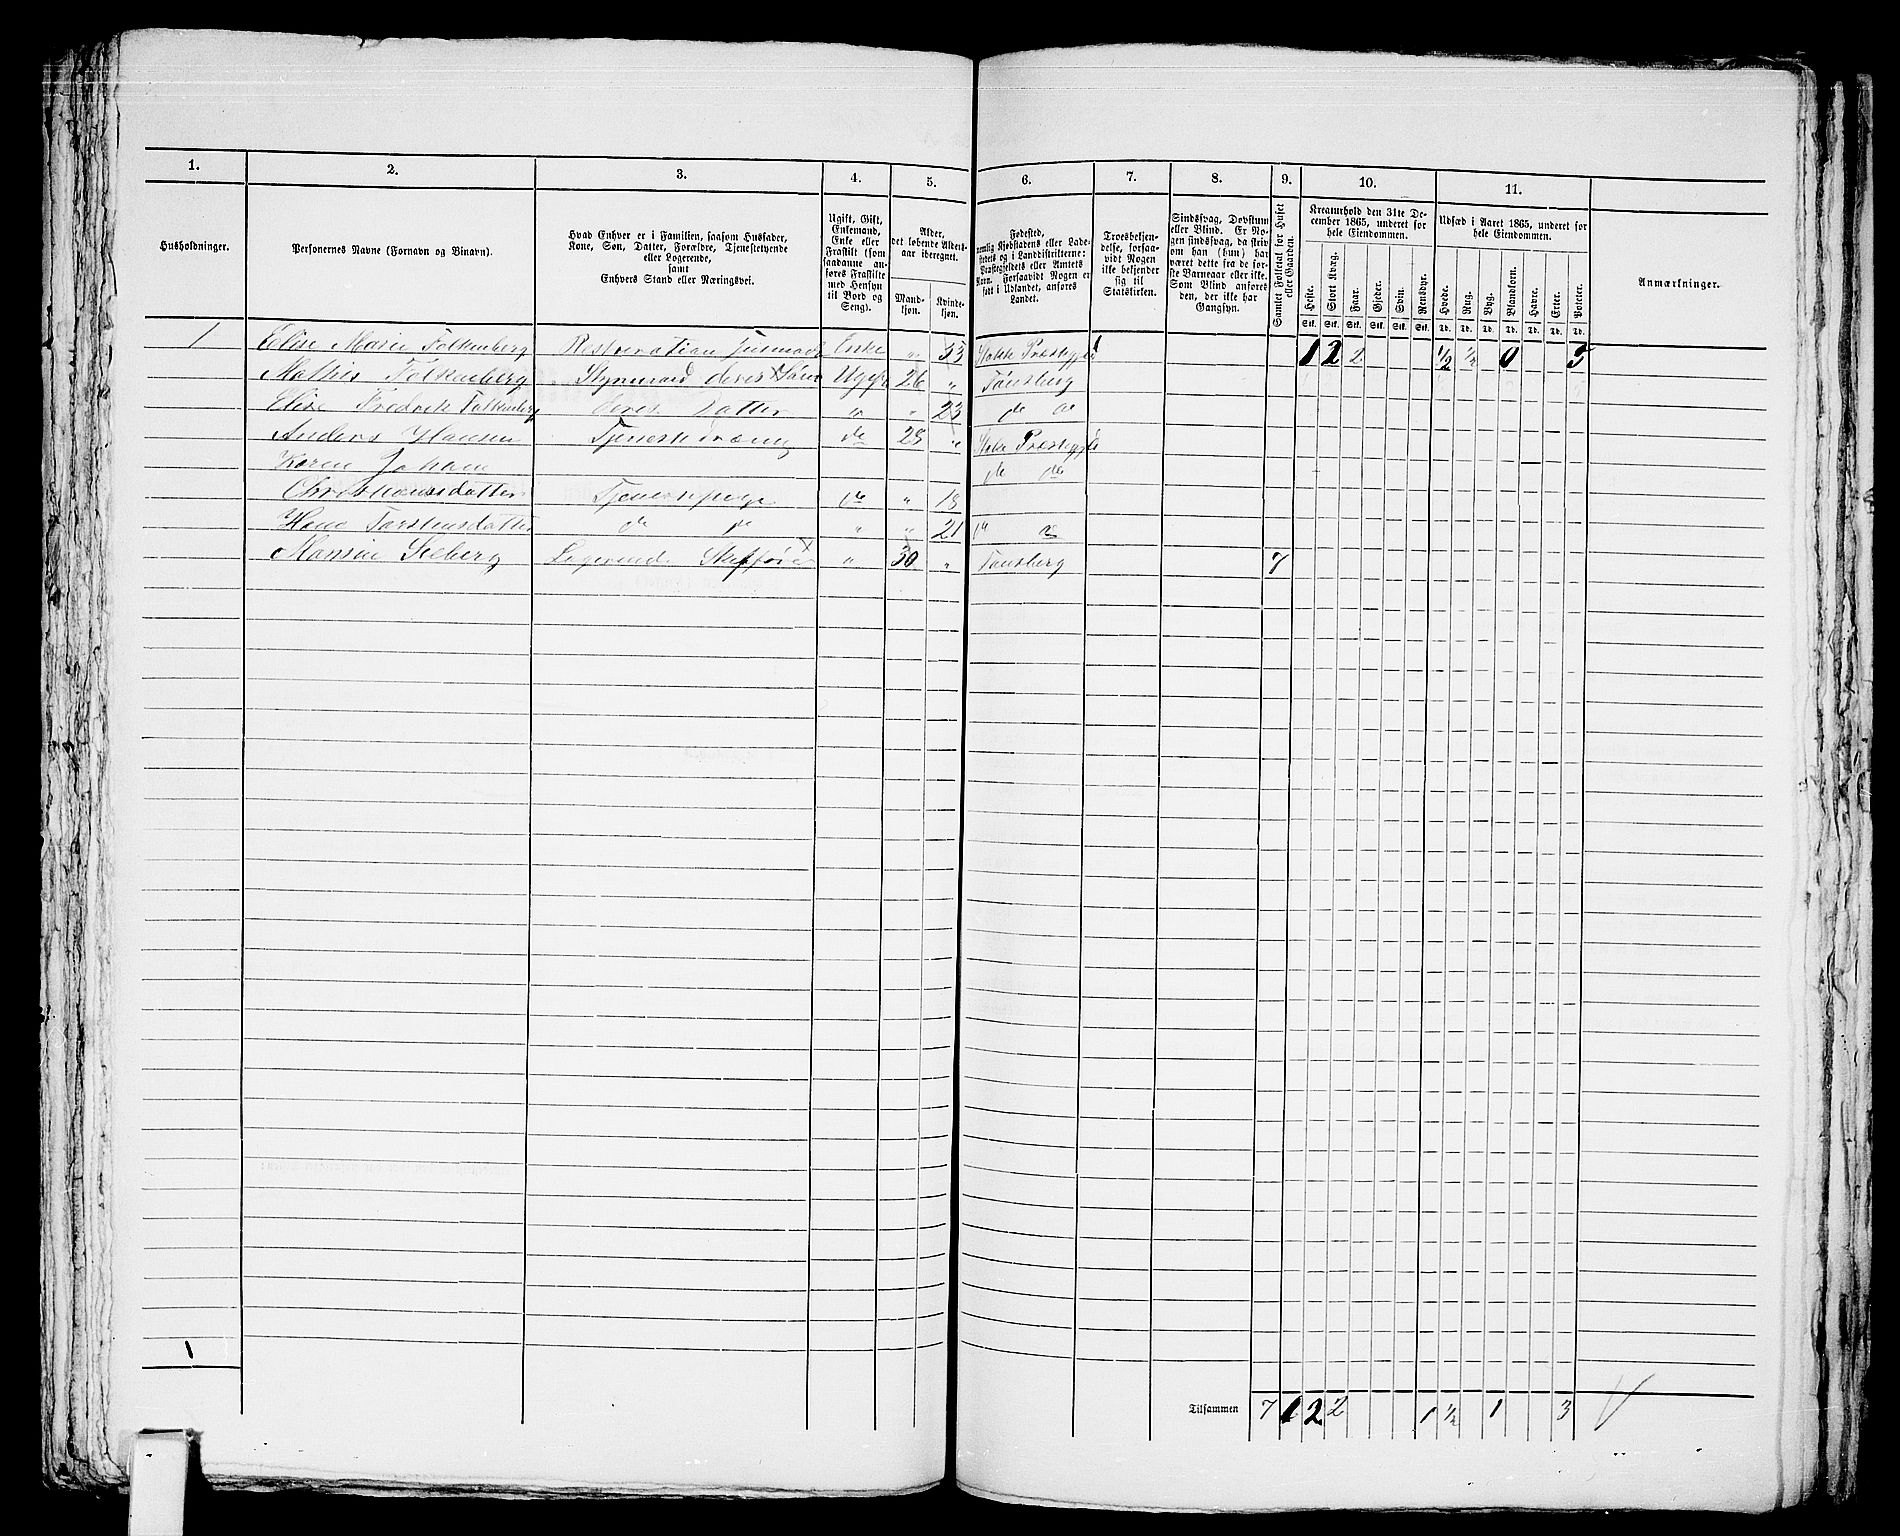 1. 2. 3. 4. 5. 6. 7. 8. 9. 10. 11.
Husholdninger.
Personernes Navne (Fornavn og Binavn).
Hvad Enhver er i Familien, saasom Husfader,
Kone, Søn, Datter, Forældre, Tjenestetyende
eller Logerende,
samt
Enhvers Stand eller Næringsvei.
Ugift, Gift,
Enkemand,
Enke eller
Fraskilt (som
saadanne an-
føres Fraskilte
med Hensyn
til Bord og
Seng).
Alder,
det løbende Alders-
aar iberegnet.
Mand-
kjøn.
Kvinde-
kjøn.
Fødested,
nemlig Kjøbstadens eller Lade-
stedets og i Landdistrikterne:
Præstegjeldets eller Amtets
Navn. Forsaavidt Nogen er
født i Udlandet, anføres
Landet.
Troesbekjen-
delse, forsaa-
vidt Nogen
ikke bekjender
sig til
Statskirken.
Sindssvag, Døvstum
eller Blind. Er No-
gen sindssvag, da skriv
om han (hun) har
været dette fra de før-
ste Barneaar eller ikke.
Som Blind anføres
den, der ikke har
Gangsyn.
Samlet Folketal for Huset
eller Gaarden.
Kreaturhold den 31te De-
cember 1865, underet for
hele Eiendommen.
Heste. Stort Kvæg. Faar. Gjeder. Svin. Rensdyr.
Stk. Stk. Stk. Stk. Stk. Stk.
Udsæd i Aaret 1865, underet for
hele Eiendommen.
Hvede. Rug. Byg. Blandkorn. Havre. Erter. Poteter.
Td. Td. Td. Td. Td. Td. Td.
Anmærkninger.
1 Elise Marie Falkenberg Enke " 53 1 2 2 1/2 1/2 0
Mathis Falkenberg Styrmand deres Søn Ugift 26 " Tønsberg
Elise Fredrik Falkenberg deres Datter " " 23 do do
Anders Hansen Tjenestedræng do 28 "
Karen Johane do do
Christiansdatter Tjenestepige do " 18
Torstensdatter do do " " 21 do do
Seeberg Logerende " 30 " Tønsberg 7
1
Tilsammen 7 1 2 2 1 1/2 1 3